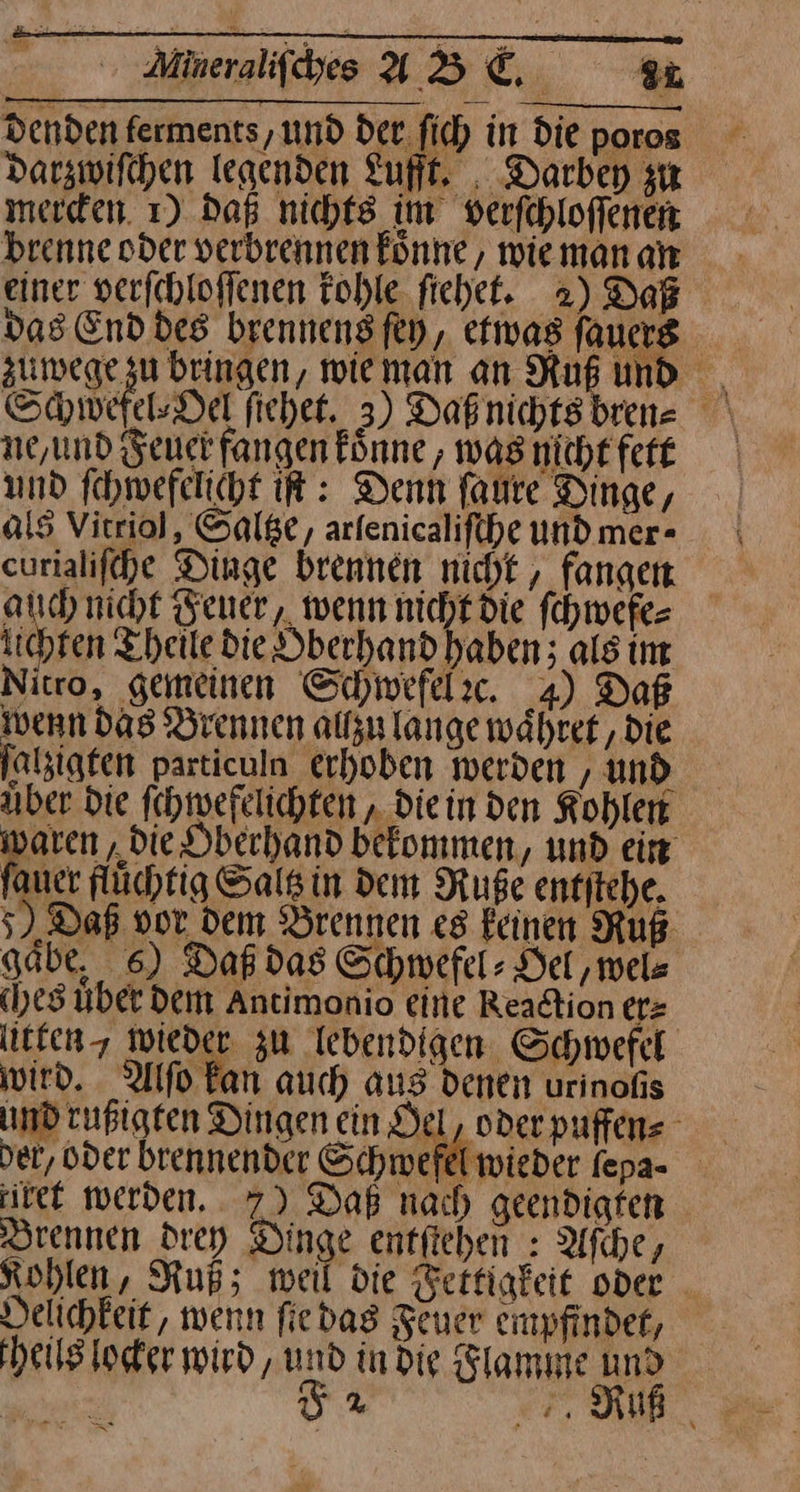 Mineraliſches A B C. 81
denden ferments, und der ſich in die poros
darzwiſchen legenden Lufft. Darbey zu
mercken 1) daß nichts im verſchloſſenen
brenne oder verbrennen koͤnne, wie man an
einer verſchloſſenen kohle ſiehet. 2) Daß
das End des brennens ſey, etwas ſauers
zuwege zu bringen, wie man an Ruß und
Schwefel-Oel ſiehet. 3) Daß nichts bren-
ne, und Feuer fangen koͤnne, was nicht fett
und ſchwefelicht iſt: Denn ſaure Dinge,
als Vitriol, Saltze, arſenicaliſche und mer-
curialiſche Dinge brennen nicht, fangen
auch nicht Feuer, wenn nicht die ſchwefe-
lichten Theile die Oberhand haben; als im
Nitro, gemeinen Schwefel ꝛc. 4) Daß
wenn das Brennen allzu lange waͤhret, die
ſalzigten particuln erhoben werden, und
uͤber die ſchwefelichten, die in den Kohlen
waren, die Oberhand bekommen, und ein
ſauer fluͤchtig Saltz in dem Ruße entſtehe.
5) Daß vor dem Brennen es keinen Ruß
gaͤbe. 6) Daß das Schwefel-Oel, wel-
ches uͤber dem Antimonio eine Reaction er-
litten, wieder zu lebendigen Schwefel
wird. Alſo kan auch aus denen urinoſis
und rußigten Dingen ein Oel, oder puffen-
der, oder brennender Schwefel wieder ſepa-
riret werden. 7) Daß nach geendigten
Brennen drey Dinge entſtehen: Aſche,
Kohlen, Ruß; weil die Fettigkeit oder
Oelichkeit, wenn ſie das Feuer empfindet,
theils locker wird, und in die Flamme und
F 2 Ruß